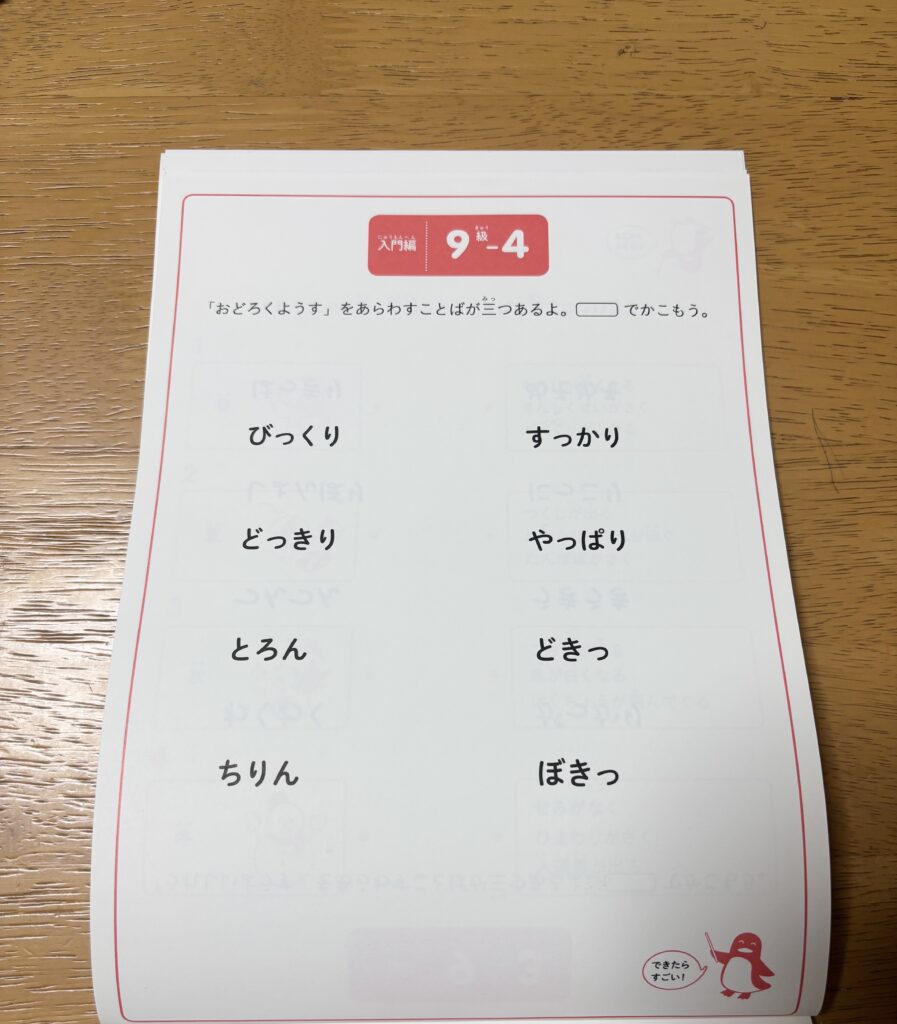 入門編 9級-4
「おどろくようす」をあらわすことばが三つあるよ。 でかこもう。
びっくり すっかり
どっきり やっぱり
とろん どきっ
ちりん ぼきっ
できたら
すごい!